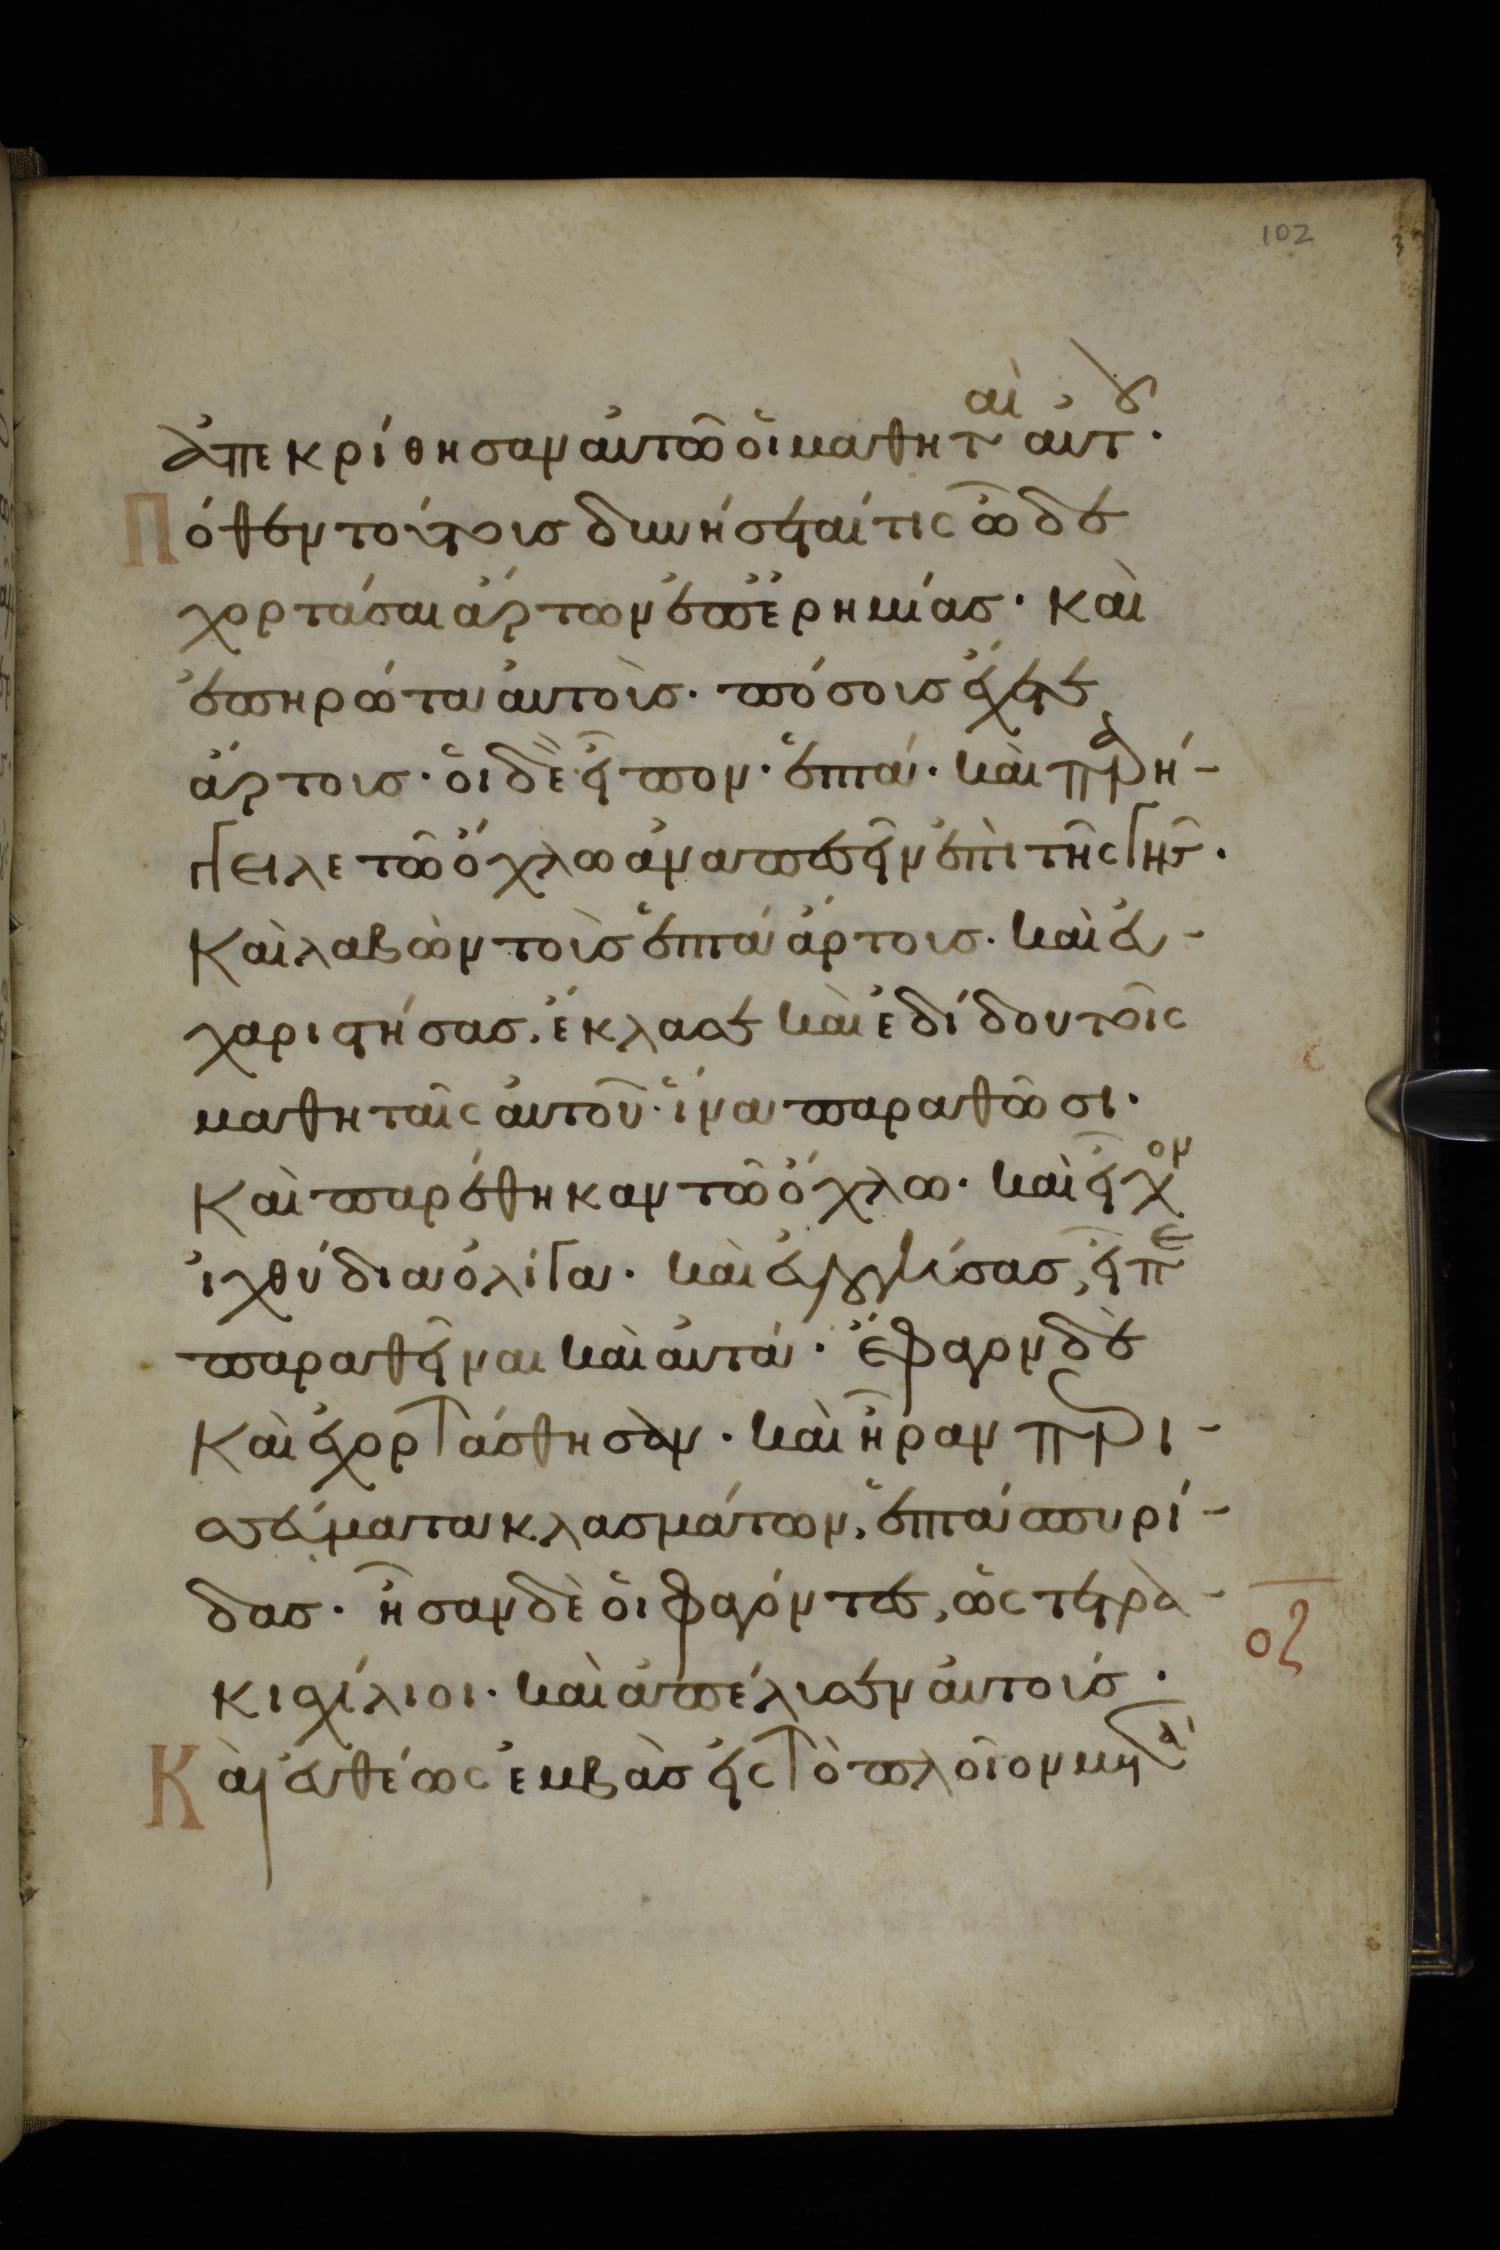 102
ἀπεκρίθησαν αὐτῶ οἱ μαθηταὶ αὐτοῦ·
Πόθεν τούτους δυνήσεταί τις ὧδε
χορτάσαι ἄρτων ἐπ' ἐρημίας· καὶ
ἐπηρώτα αὐτοὺς· πόσους ἔχετε
ἄρτους· οἱ δὲ εἶπον· ἑπτά· καὶ παρή-
γγειλε τῶ ὄχλω ἀναπεσεῖν ἐπὶ τῆς γῆς·
Καὶ λαβὼν τοὺς ἑπτὰ ἄρτους· καὶ εὐ-
χαριστήσας, ἔκλασε καὶ ἐδίδου τοῖς
μαθηταῖς αὐτοῦ· ἵνα παραθῶσι·
Καὶ παρέθηκαν τῶ ὄχλω· καὶ εἶχον
ἰχθύδια ὀλίγα· καὶ εὐλογήσας, εἶπε
παραθεῖναι καὶ αὐτά· ἔφαγον δὲ
Καὶ ἐχορτάσθησαν· καὶ ἦραν περι-
σσεύματα κλασμάτων, ἑπτὰ σπυρί-
δας· ἦσαν δὲ οἱ φαγόντες, ὡς τετρα-
κισχίλιοι· καὶ ἀπέλυσεν αὐτούς·
οζ
Καὶ εὐθέως ἐμβὰς εἰς τὸ πλοῖον μετὰ